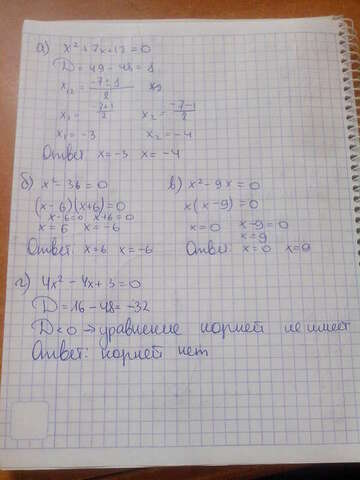 а) x² + 7x + 12 = 0
D = 49 - 48 = 1
x₁,₂ = -7 ± 1 / 2
x₁ = -7+1 / 2 x₂ = -7-1 / 2
x₁ = -3 x₂ = -4
Ответ x = -3 x = -4
б) x² - 36 = 0 в) x² - 9x = 0
(x - 6)(x + 6) = 0 x(x - 9) = 0
x - 6 = 0 x + 6 = 0 x = 0 x - 9 = 0
x = 6 x = -6 x = 9
Ответ x = 6 x = -6 Ответ x = 0 x = 9
г) 4x² - 4x + 3 = 0
D = 16 - 48 = -32
D < 0 → уравнение корней не имеет
Ответ: корней нет